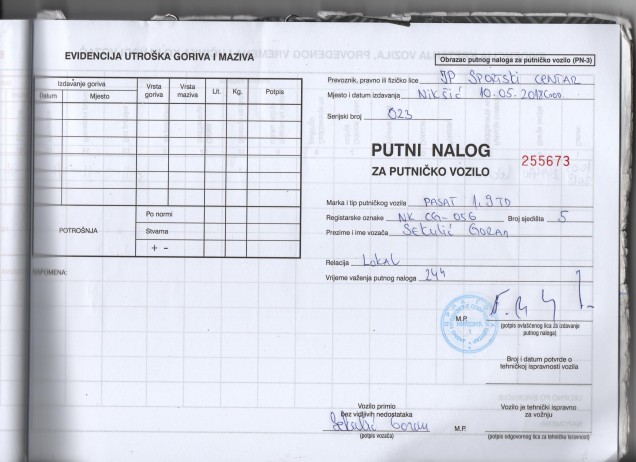 EVIDENCIJA UTROŠKA GORIVA I MAZIVA
Izdavanje goriva
Datum Mjesto Vrsta goriva Vrsta maziva Lit. Kg. Potpis
POTROŠNJA
Po normi
Stvarna
+ -
NAPOMENA:
Obrazac putnog naloga za putničko vozilo (PN-3)
Prevoznik, pravno ili fizičko lice JP SPORTSKI CENTAR
Mjesto i datum izdavanja NIKŠIĆ 10.05.2012
Serijski broj 023
PUTNI NALOG
ZA PUTNIČKO VOZILO
255673
Marka i tip putničkog vozila PASAT 1.9 TD
Registarske oznake NK CG-056 Broj sjedišta 5
Prezime i ime vozača SEKULIĆ GORAN
Relacija LOKAL
Vrijeme važenja putnog naloga 24h
M.P.
(potpis ovlašćenog lica za izdavanje
putnog naloga)
Broj i datum potvrde o
tehničkoj ispravnosti vozila
Vozilo primio
bez vidljivih nedostataka
Sekulić Goran
(potpis vozača)
M.P.
Vozilo je tehnički ispravno
za vožnju
(potpis odgovornog lica za tehničku ispravnost)